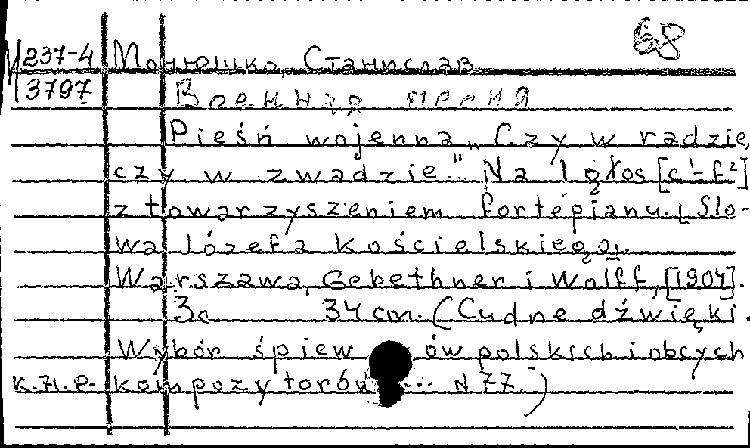 68
М 237-4 Монюшко, Станислав
3797 Военная песня
Pieśń wojenna „Czy w radzie,
czy w zwadzie." Na 1 głos [c¹-f²]
z towarzyszeniem fortepianu. Sło-
wa Józefa Kościelskiego.
Warszawa, Gebethner i Wolff, [1904].
3c 34 cm. (Cudne dźwięki.
Wybór śpiewów polskich i obcych
к.н.р. kompozytorów ... N 77.)